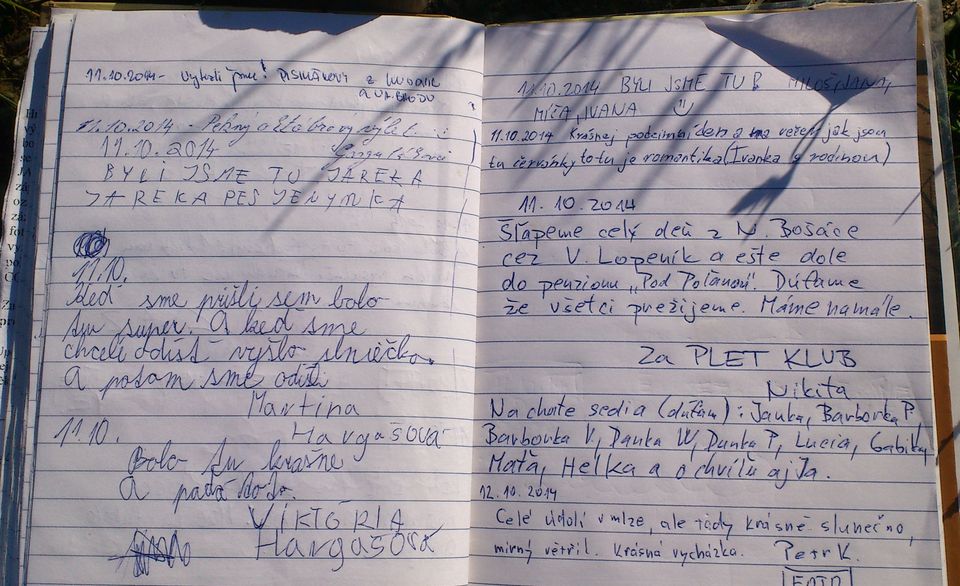 11.10.2014 - Vylezli jsme! PISKLÁKOVI z
11.10.2014 - Pěkný a výlet
11.10.2014
BYLI JSME TU JAREKA
JAREKA PES JENYMKA
11.10.
Keď sme prišli sem bolo
tu super. A keď sme
chceli odísť vyšlo slniečko.
A potom sme odišli
Martina
Hargašová
11.10.
Bolo tu krásne
A
VIKTÓRIA
Hargašová
11.10.2014 BYLI JSME TU MILOŠ, JANA,
MÍŠA, IVANA
11.10.2014 Krásnej podzimní den a na večer jak jsou
tu červánky to tu je romantika (Ivanka s rodinou)
11.10.2014
Šľapeme celý deň z N. Bošáce
cez V. Lopeník a ešte dole
do penziónu "Pod Poľanou". Dúfame
že všetci prežijeme. Máme namále.
Za PLET KLUB
Nikita
Na chate sedia (dúfam): Janka, Barborka P,
Barborka V, Danka W, Danka P, Lucia, Gabika,
Maťa, Helka a o chvíľu aj Ja.
12.10.2014
Celé údolí v mlze, ale tády krásně slunečno,
mírný větřil. Krásná vycházka. Petr K.